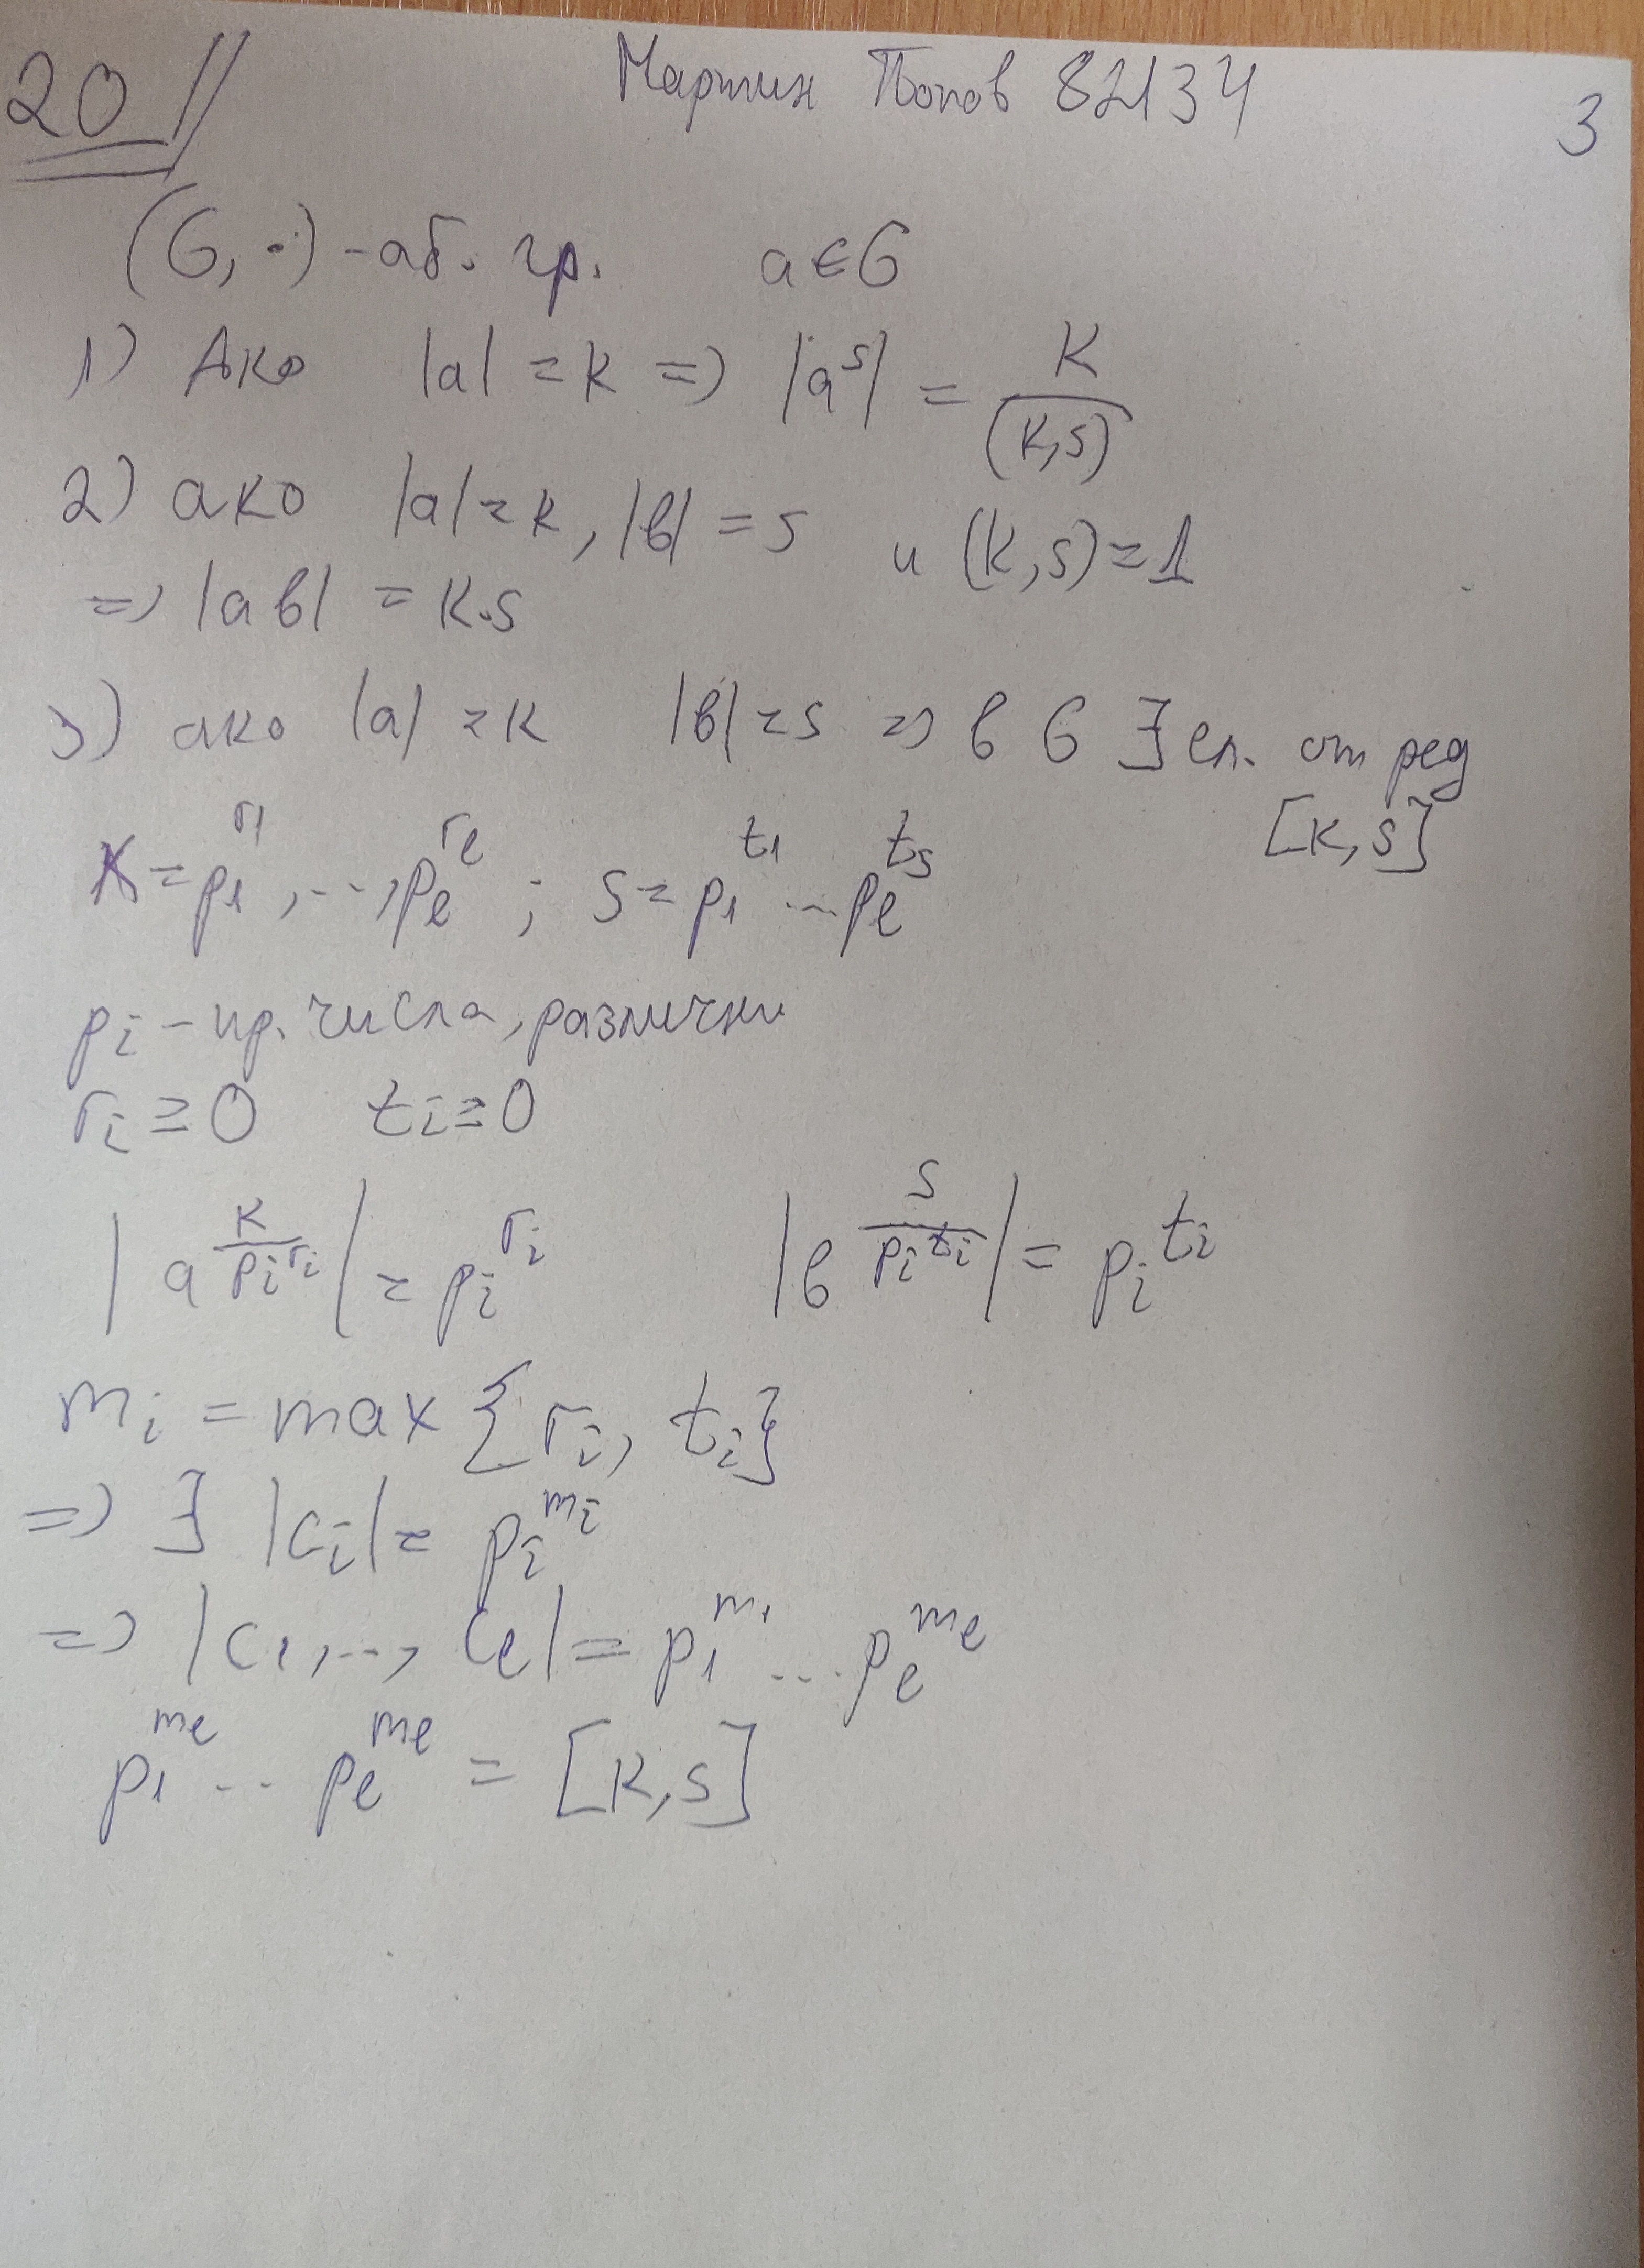 20 // Мартин Попов 82134 3
(G, ·) - аб. гр. a ∈ G
1) Ако |a| = k => |a^s| = k/(k,s)
2) ако |a| = k, |b| = s и (k,s) = 1
=> |ab| = k.s
3) ако |a| = k |b| = s => в G ∃ ел. от ред
[k,s]
k = p_1^{r_1}, ..., p_l^{r_l} ; s = p_1^{t_1} ... p_l^{t_s}
p_i - пр. числа, различни
r_i ≥ 0 t_i ≥ 0
|a^{k/p_i^{r_i}}| = p_i^{r_i} |b^{s/p_i^{t_i}}| = p_i^{t_i}
m_i = max {r_i, t_i}
=> ∃ |c_i| = p_i^{m_i}
=> |c_1, ..., c_l| = p_1^{m_1} ... p_l^{m_l}
p_1^{m_l} ... p_l^{m_l} = [k,s]